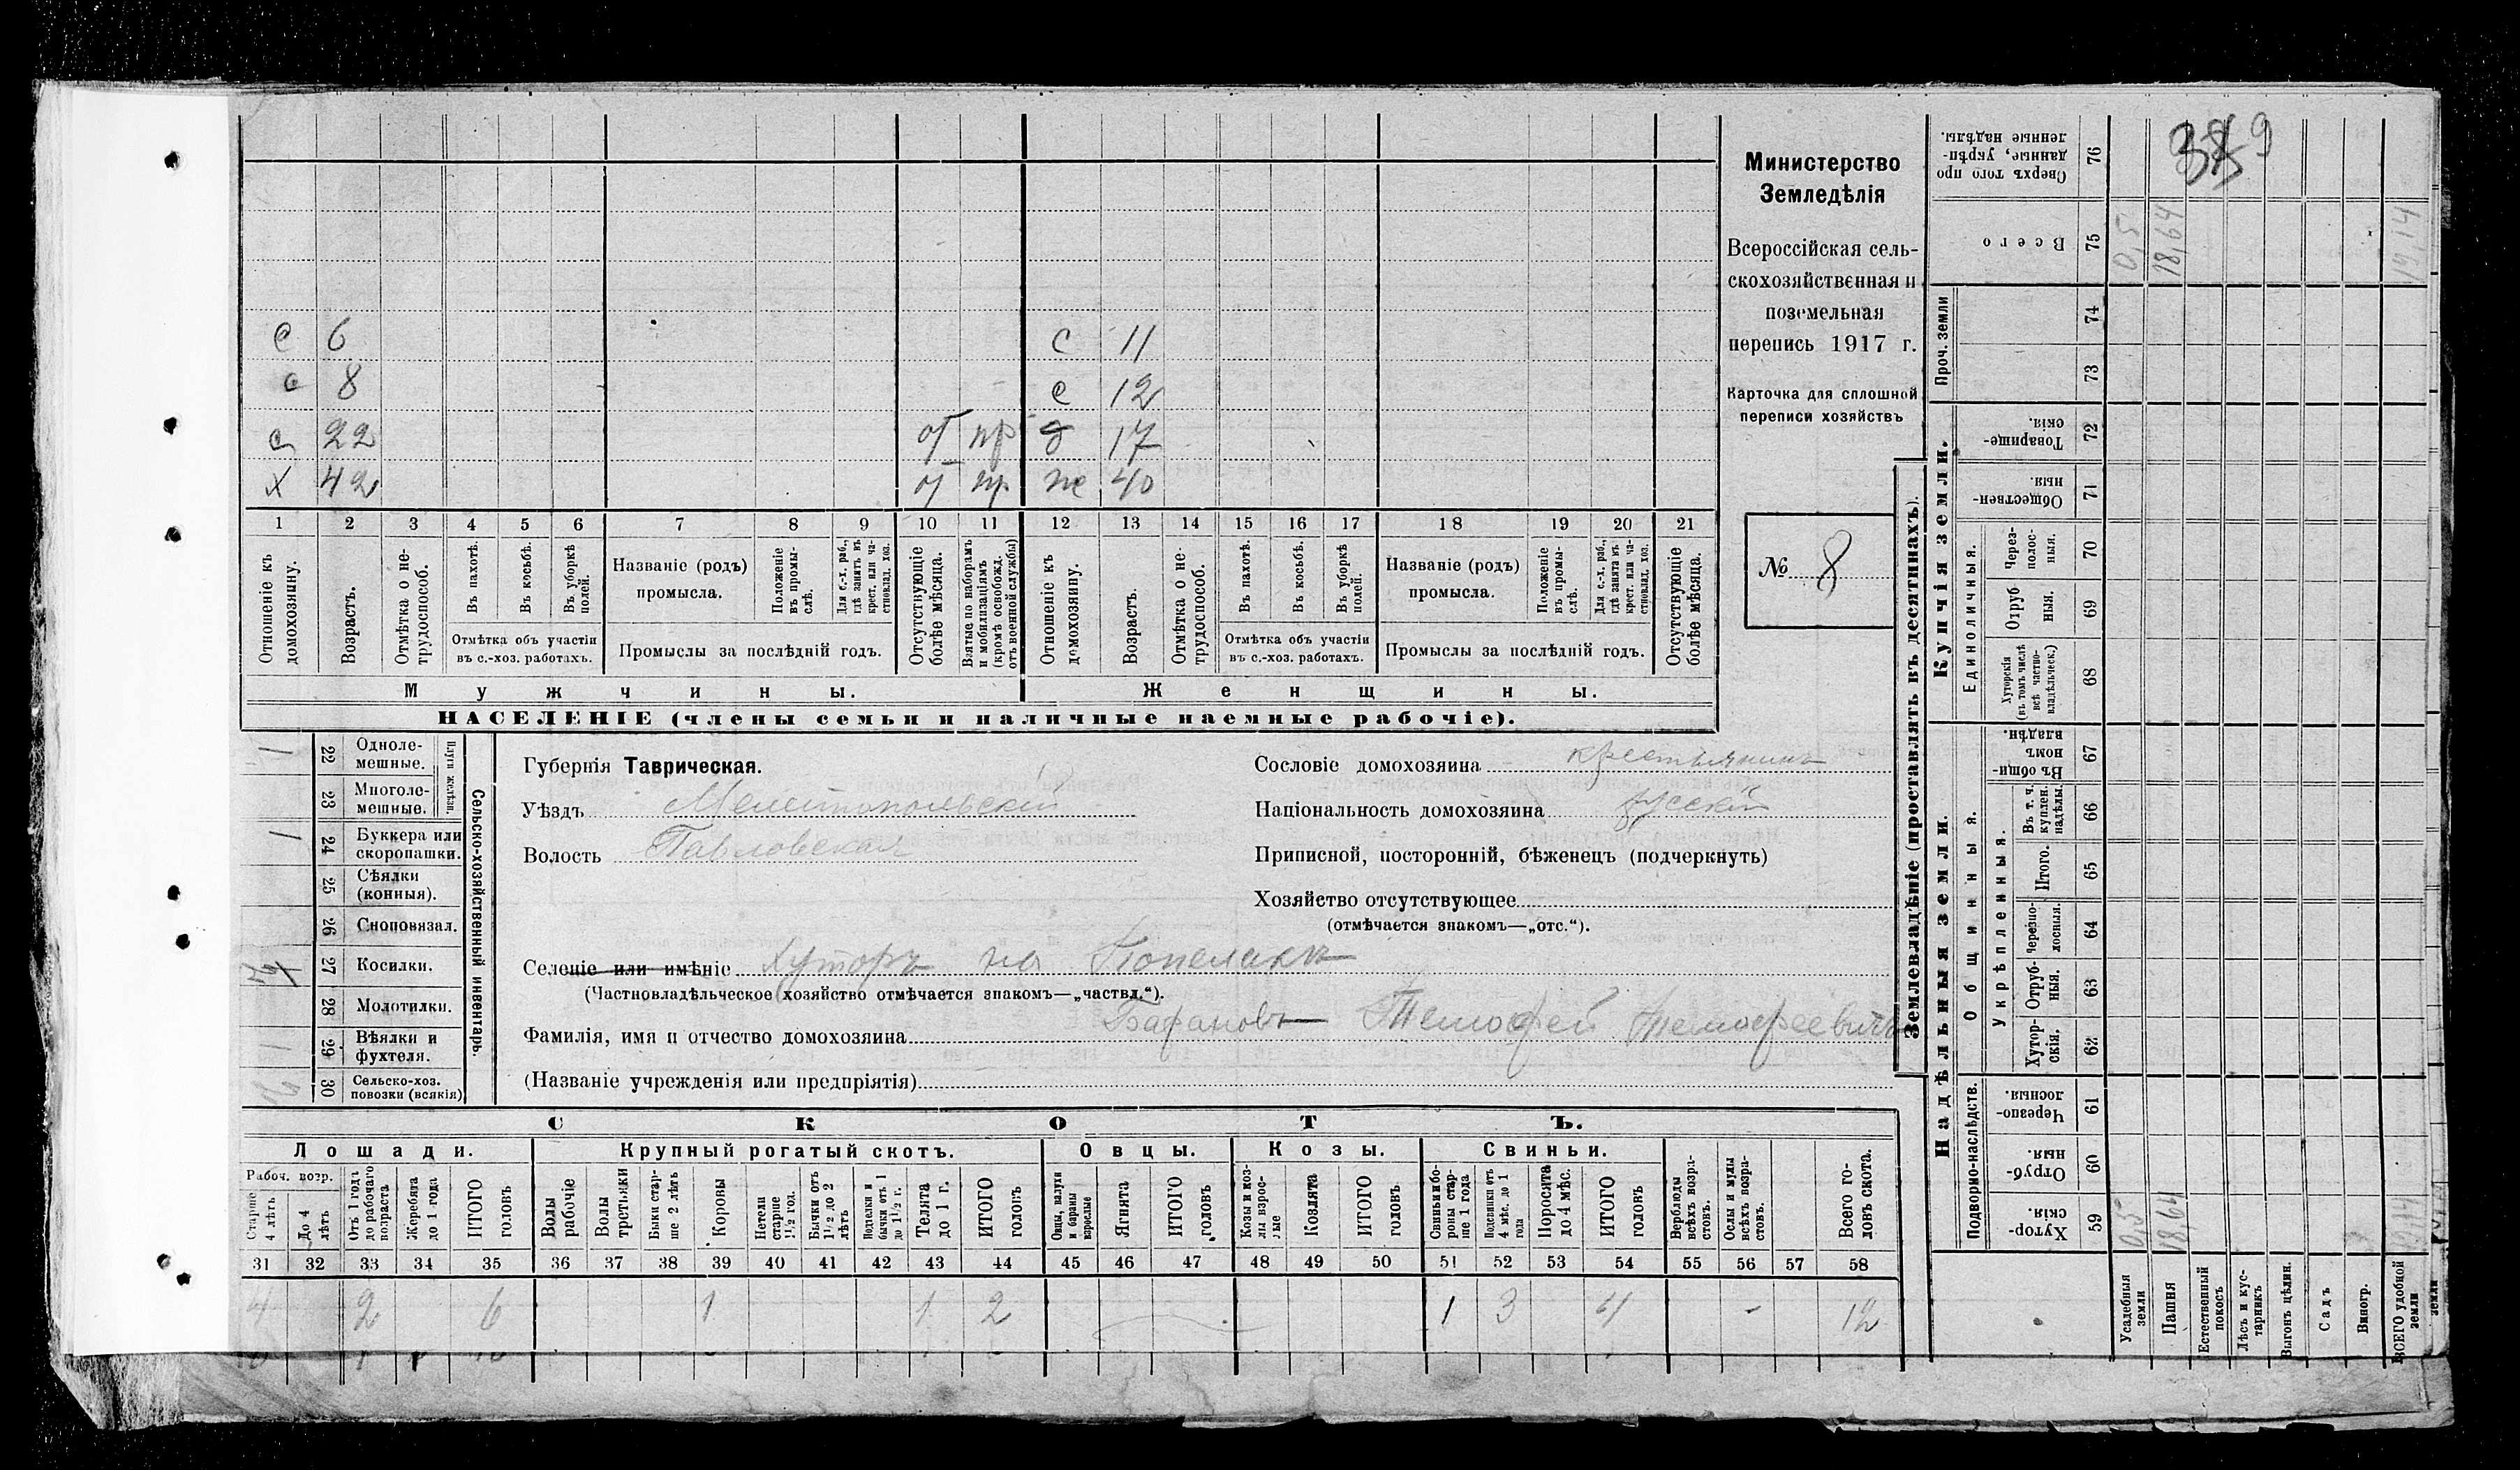 с 6 с 11
с 8 с 12
с 22 от пр д 17
х 42 от пр же 40
1 2 3 4 5 6 7 8 9 10 11 12 13 14 15 16 17 18 19 20 21
Отношеніе къ домохозяину.
Возрастъ.
Отмѣтка о не-
трудоспособ.
Въ пахотѣ.
Въ косьбѣ.
Въ уборкѣ полей.
Отмѣтка объ участіи
въ с.-хоз. работахъ.
Названіе (родъ)
промысла.
Положеніе въ промы-
слѣ.
Для с.-х. раб.,
гдѣ занятъ въ
крест. или ча-
стновлад. хоз.
Промыслы за послѣдній годъ.
Отсутствующіе
болѣе мѣсяца.
Взятые по наборамъ
и мобилизаціямъ
(кромѣ освобожд.
отъ военной службы)
Отношеніе къ
домохозяину.
Возрастъ.
Отмѣтка о не-
трудоспособ.
Въ пахотѣ.
Въ косьбѣ.
Въ уборкѣ полей.
Отмѣтка объ участіи
въ с.-хоз. работахъ.
Названіе (родъ)
промысла.
Положеніе въ промы-
слѣ.
Для с.-х. раб.,
гдѣ занята въ
крест. или ча-
стновлад. хоз.
Промыслы за послѣдній годъ.
Отсутствующіе
болѣе мѣсяца.
Мужчины. Женщины.
НАСЕЛЕНІЕ (члены семьи и наличные наемные рабочіе).
Министерство
Земледѣлія
Всероссійская сель-
скохозяйственная и
поземельная
перепись 1917 г.
Карточка для сплошной
переписи хозяйствъ
№ 8
Сельско-хозяйственный инвентарь.
Плуги желѣзн.
1 22 Одноле-
мешные.
23 Многоле-
мешные.
1 24 Буккера или
скоропашки.
25 Сѣялки
(конныя).
26 Сноповязал.
27 Косилки.
28 Молотилки.
1 29 Вѣялки и
фухтеля.
30 Сельско-хоз.
повозки (всякія)
Губернія Таврическая.
Уѣздъ Мелитопольскій
Волость Павловская
Сословіе домохозяина крестьянинъ
Національность домохозяина русскій
Приписной, посторонній, бѣженецъ (подчеркнуть)
Хозяйство отсутствующее
(отмѣчается знакомъ—„отс.“).
Селеніе или имѣніе Хуторъ на
(Частновладѣльческое хозяйство отмѣчается знакомъ—„частвл.“).
Фамилія, имя и отчество домохозяина Барановъ Тимофей Тимофеевичъ
(Названіе учрежденія или предпріятія)
СКОТЪ.
Лошади. Крупный рогатый скотъ. Овцы. Козы. Свиньи.
Рабоч. возр.
Старше
4 лѣтъ
До 4
лѣтъ
Отъ 1 года
до рабочаго
возраста
Жеребята
до 1 года
ИТОГО
головъ
Волы
рабочіе
Волы
третьяки
Быки стар-
ше 2 лѣтъ
Коровы
Нетели
старше
1 1/2 год.
Бычки отъ
1 1/2 до 2
лѣтъ
Подтелки и
бычки отъ 1
до 1 1/2 г.
Телята
до 1 г.
ИТОГО
головъ
Овцы, валухи
и бараны
взрослые
Ягнята
ИТОГО
головъ
Козы и коз-
лы взрос-
лые
Козлята
ИТОГО
головъ
Свиньи и бо-
ровы стар-
ше 1 года
Подсвинки отъ
4 мѣс. до 1
года
Поросята
до 4 мѣс.
ИТОГО
головъ
Верблюды
всѣхъ возра-
стовъ.
Ослы и мулы
всѣхъ возра-
стовъ.
Всего го-
ловъ скота.
31 32 33 34 35 36 37 38 39 40 41 42 43 44 45 46 47 48 49 50 51 52 53 54 55 56 57 58
4 2 6 1 1 2 1 3 4 - 12
Землевладѣніе (проставлять въ десятинахъ).
Купчія земли.
Надѣльныя земли.
Сверхъ того про
данные, укрѣп-
ленные надѣлы. 76
9
Всего 75 0,5 18,64 19,14
Проч. земли 74
73
Товарище-
скія. 72
Обществен-
ныя. 71
Единоличныя.
Через-
полос-
ныя. 70
Отруб
ныя. 69
Хуторскія
(въ томъ числѣ
всѣ частно-
владѣльческ.) 68
Общинныя.
Въ общи-
номъ
владѣн. 67
Укрѣпленныя.
Въ т. ч.
куплен.
надѣлы. 66
Итого. 65
Черезпо-
лосныя. 64
Отруб-
ныя. 63
Хутор-
скія. 62
Подворно-наслѣдств.
Черезпо-
лосныя. 61
Отруб-
ныя. 60
Хутор-
скія. 59 0,5 18,64 19,14
Усадебныя
земли
Пашня
Естественный
покосъ
Лѣсъ и кус-
тарникъ
Выгонъ цѣлин.
Садъ
Виногр.
ВСЕГО удобной
земли
земли